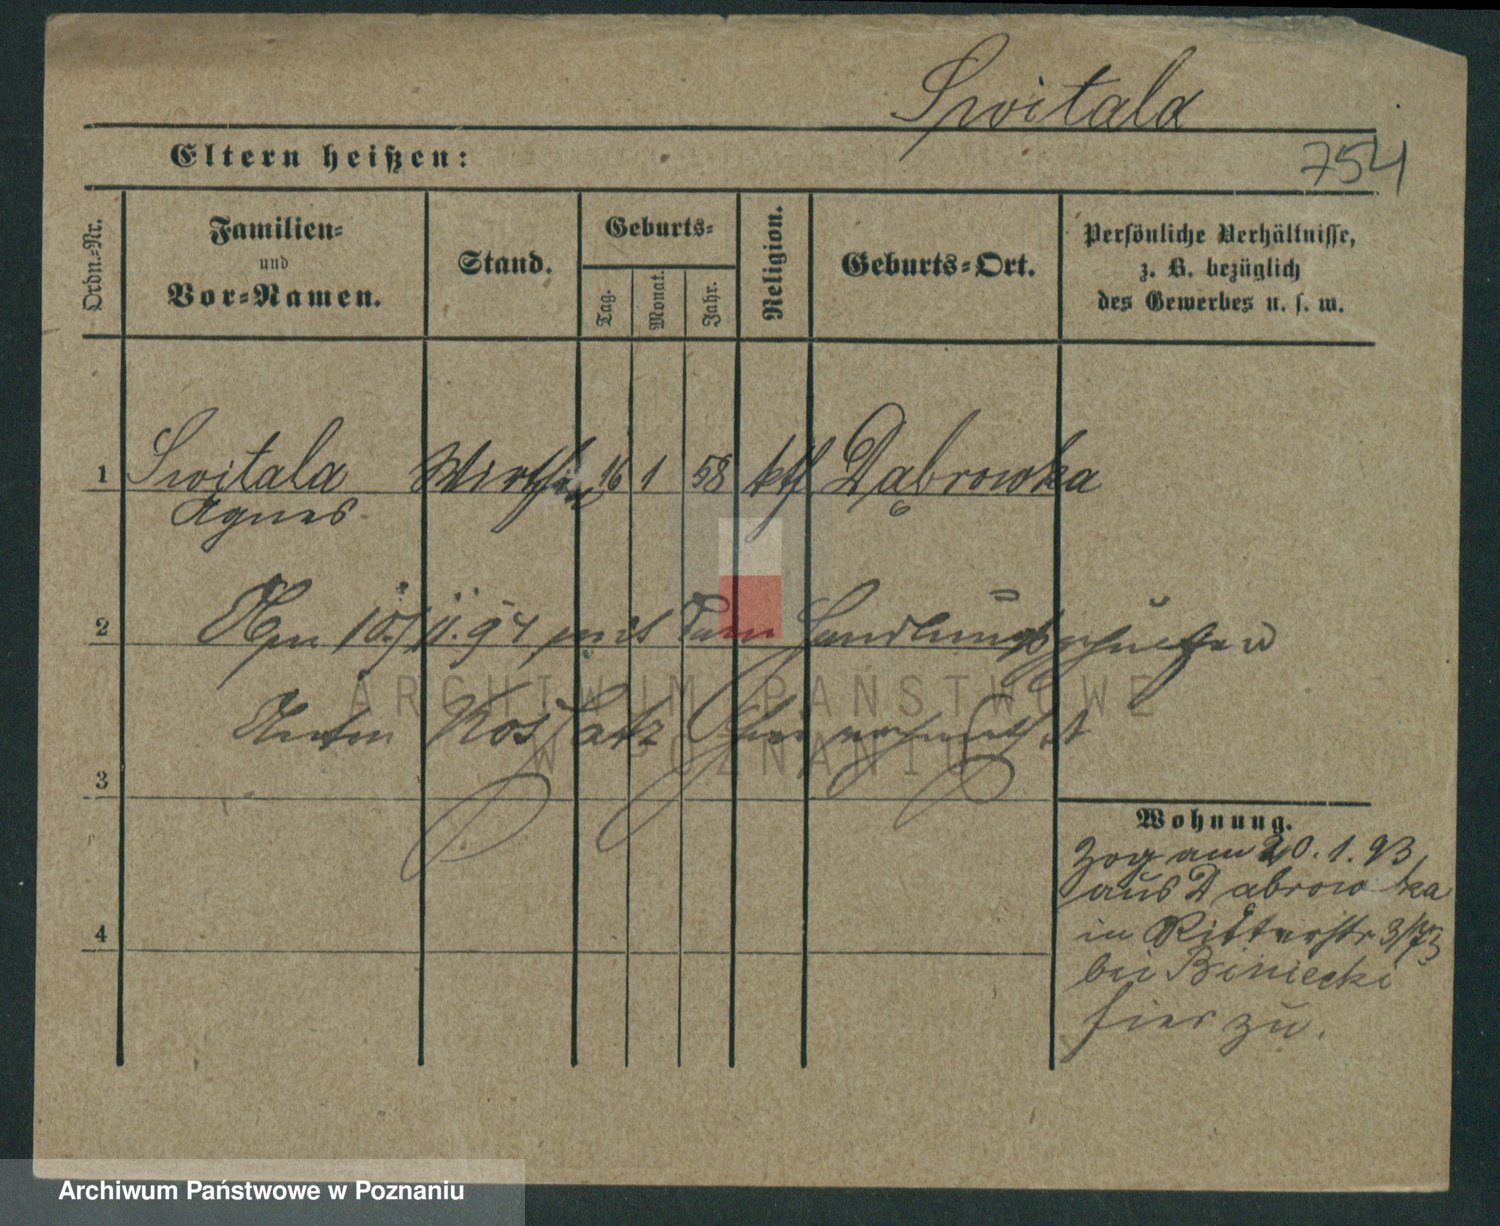 Switala
754
Eltern heißen:
Ordn.-Nr.
Familien-
und
Vor-Namen.
Stand.
Geburts-
Tag.
Monat.
Jahr.
Religion.
Geburts-Ort.
Persönliche Verhältnisse,
z. B. bezüglich
des Gewerbes u. s. w.
1 Switala Wirthin 16 1 58 kth Dąbrowka
Agnes
2 Am 10./11. 94 mit dem Handlungsgehülfen
Anton Kossatz
3
Wohnung.
Zog am 20.1.93,
aus Dąbrowka
in Ritterstr
bei Biniecki
hier zu.
4
ARCHIWUM PAŃSTWOWE
W POZNANIU
Archiwum Państwowe w Poznaniu